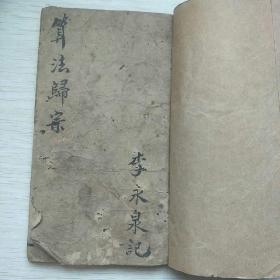 算法歸宗
李永泉記